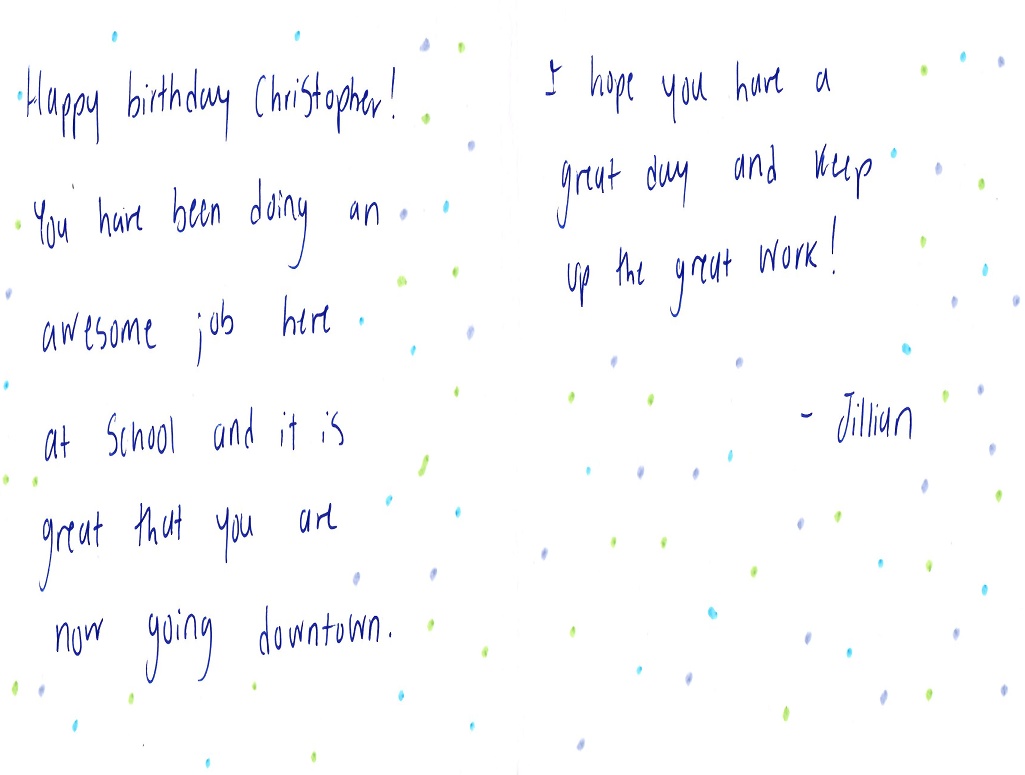 Happy birthday Christopher!
You have been doing an
awesome job here
at School and it is
great that you are
now going downtown.
I hope you have a
great day and keep
up the great work!
- Jillian